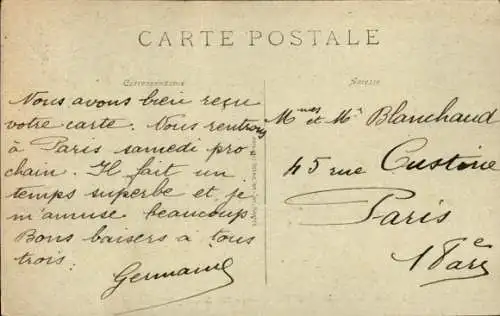 CARTE POSTALE
Correspondance
Adresse
Nous avons bien reçu
votre carte. Nous rentrons
à Paris samedi pro
chain. Il fait un
temps superbe et je
m'amuse beaucoup
Bons baisers à tous
trois.
Germaine
Mmes et Mr Blanchaud
45 rue Custine
Paris